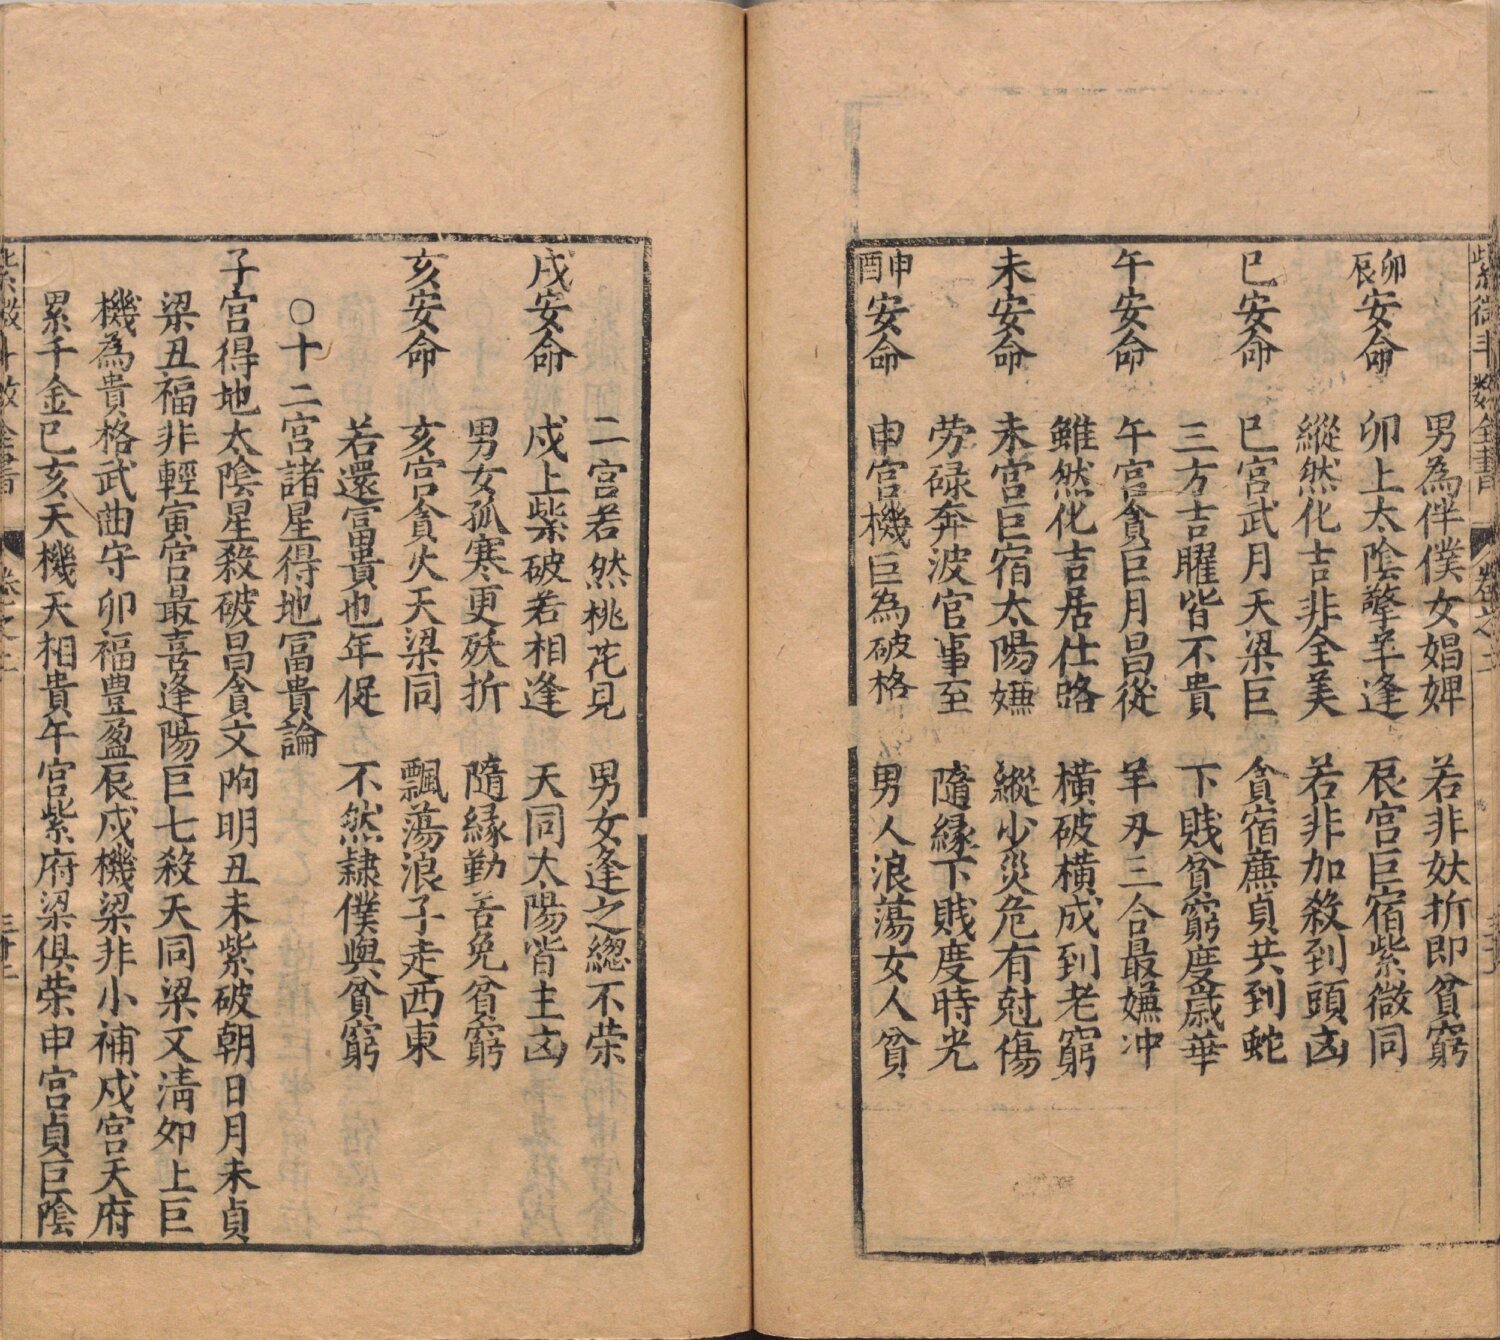 紫微斗數全書 卷之二
男為伴僕女娼婢 若非妖折即貧窮
卯辰安命 卯上太陰擎羊逢 辰宮巨宿紫微同
縱然化吉非全美 若非加殺到頭凶
巳安命 巳宮武月天梁巨 貪宿蔗貞共到蛇
三方吉曜皆不貴 下賤貧窮度歲華
午安命 午宮貪巨月昌從 羊刃三合最嫌冲
雖然化吉居仕路 橫破橫成到老窮
未安命 未宮巨宿太陽嫌 縱少災危有尅傷
勞碌奔波官事至 隨緣下賤度時光
申酉安命 申宮機巨為破格 男人浪蕩女人貧
二宮若然桃花見 男女逢之總不荣
戌安命 戌上紫破若相逢 天同太陽皆主凶
男女孤寒更殀折 隨緣勤善免貧窮
亥安命 亥宮貪火天梁同 飄蕩浪子走西東
若還富貴也年促 不然隷僕與貧窮
○十二宮諸星得地富貴論
子宮得地太陰星殺破昌貪文昫明丑未紫破朝日月未貞
梁丑福非輕寅宮最喜逢陽巨七殺天同梁又清卯上巨
機為貴格武曲守卯福豊盈辰戌機梁非小補戌宮天府
累千金巳亥天機天相貴午宮紫府梁俱荣申宮貞巨陰
紫微斗數全書 卷之二